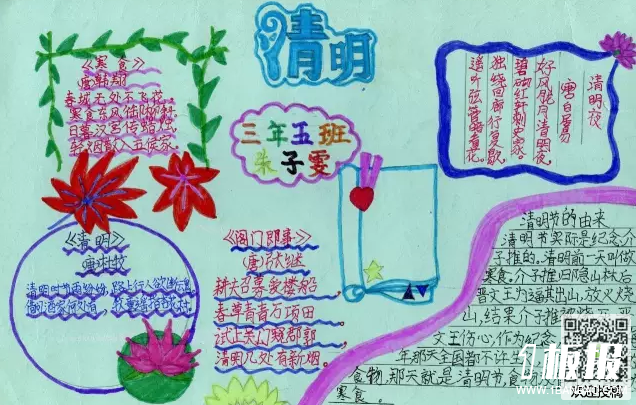 清明
三年五班
朱子雯
《寒食》
唐韩翃
春城无处不飞花,
寒食东风御柳斜.
日暮汉宫传蜡烛,
轻烟散入五侯家.
清明夜
唐白居易
好风胧月清明夜,
碧砌红轩刺史家。
独绕回廊行复歇,
遥听弦管暗看花。
《清明》
唐杜牧
清明时节雨纷纷,路上行人欲断魂
借问酒家何处有,牧童遥指杏花村.
《阊门即事》
唐张继
耕夫召募爱楼船,
春草青青万项田
试上吴门窥郡郭,
清明几处有新烟.
清明节的由来
清明节实际是纪念介
子推的.清明前一天叫做
寒食.介子推归隐山林后
晋文王为逼其出山,放火烧
山,结果介子推被
文王伤心,作为纪念
年那天全国都不许生
食物,那天就是清明节,食物
寒食.
板报